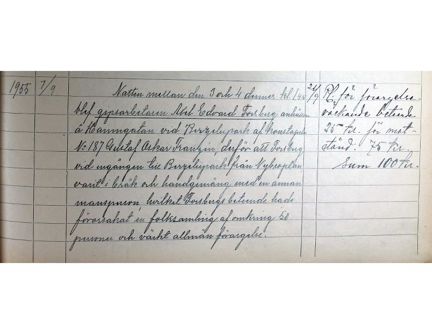 1955 7/9
Natten mellan den 3 och 4 dennes kl 1
blef gipsarbetaren Axel Edvard Forsberg anhållen
å Hamngatan vid Berzelii park af Konstapeln
N:187 Gustaf Oskar Franzén, derför att Forsberg
vid ingången till Berzelii park från Nybroplan
varit i bråk och handgemäng med en annan
mansperson, hvilket Forsbergs beteende hade
förorsakat en folksamling af omkring 50
personer och väckt allmän förargelse.
för förargelse
väckande beteende
25 kr. för mot
stånd. 75 kr.
Sum 100 kr.